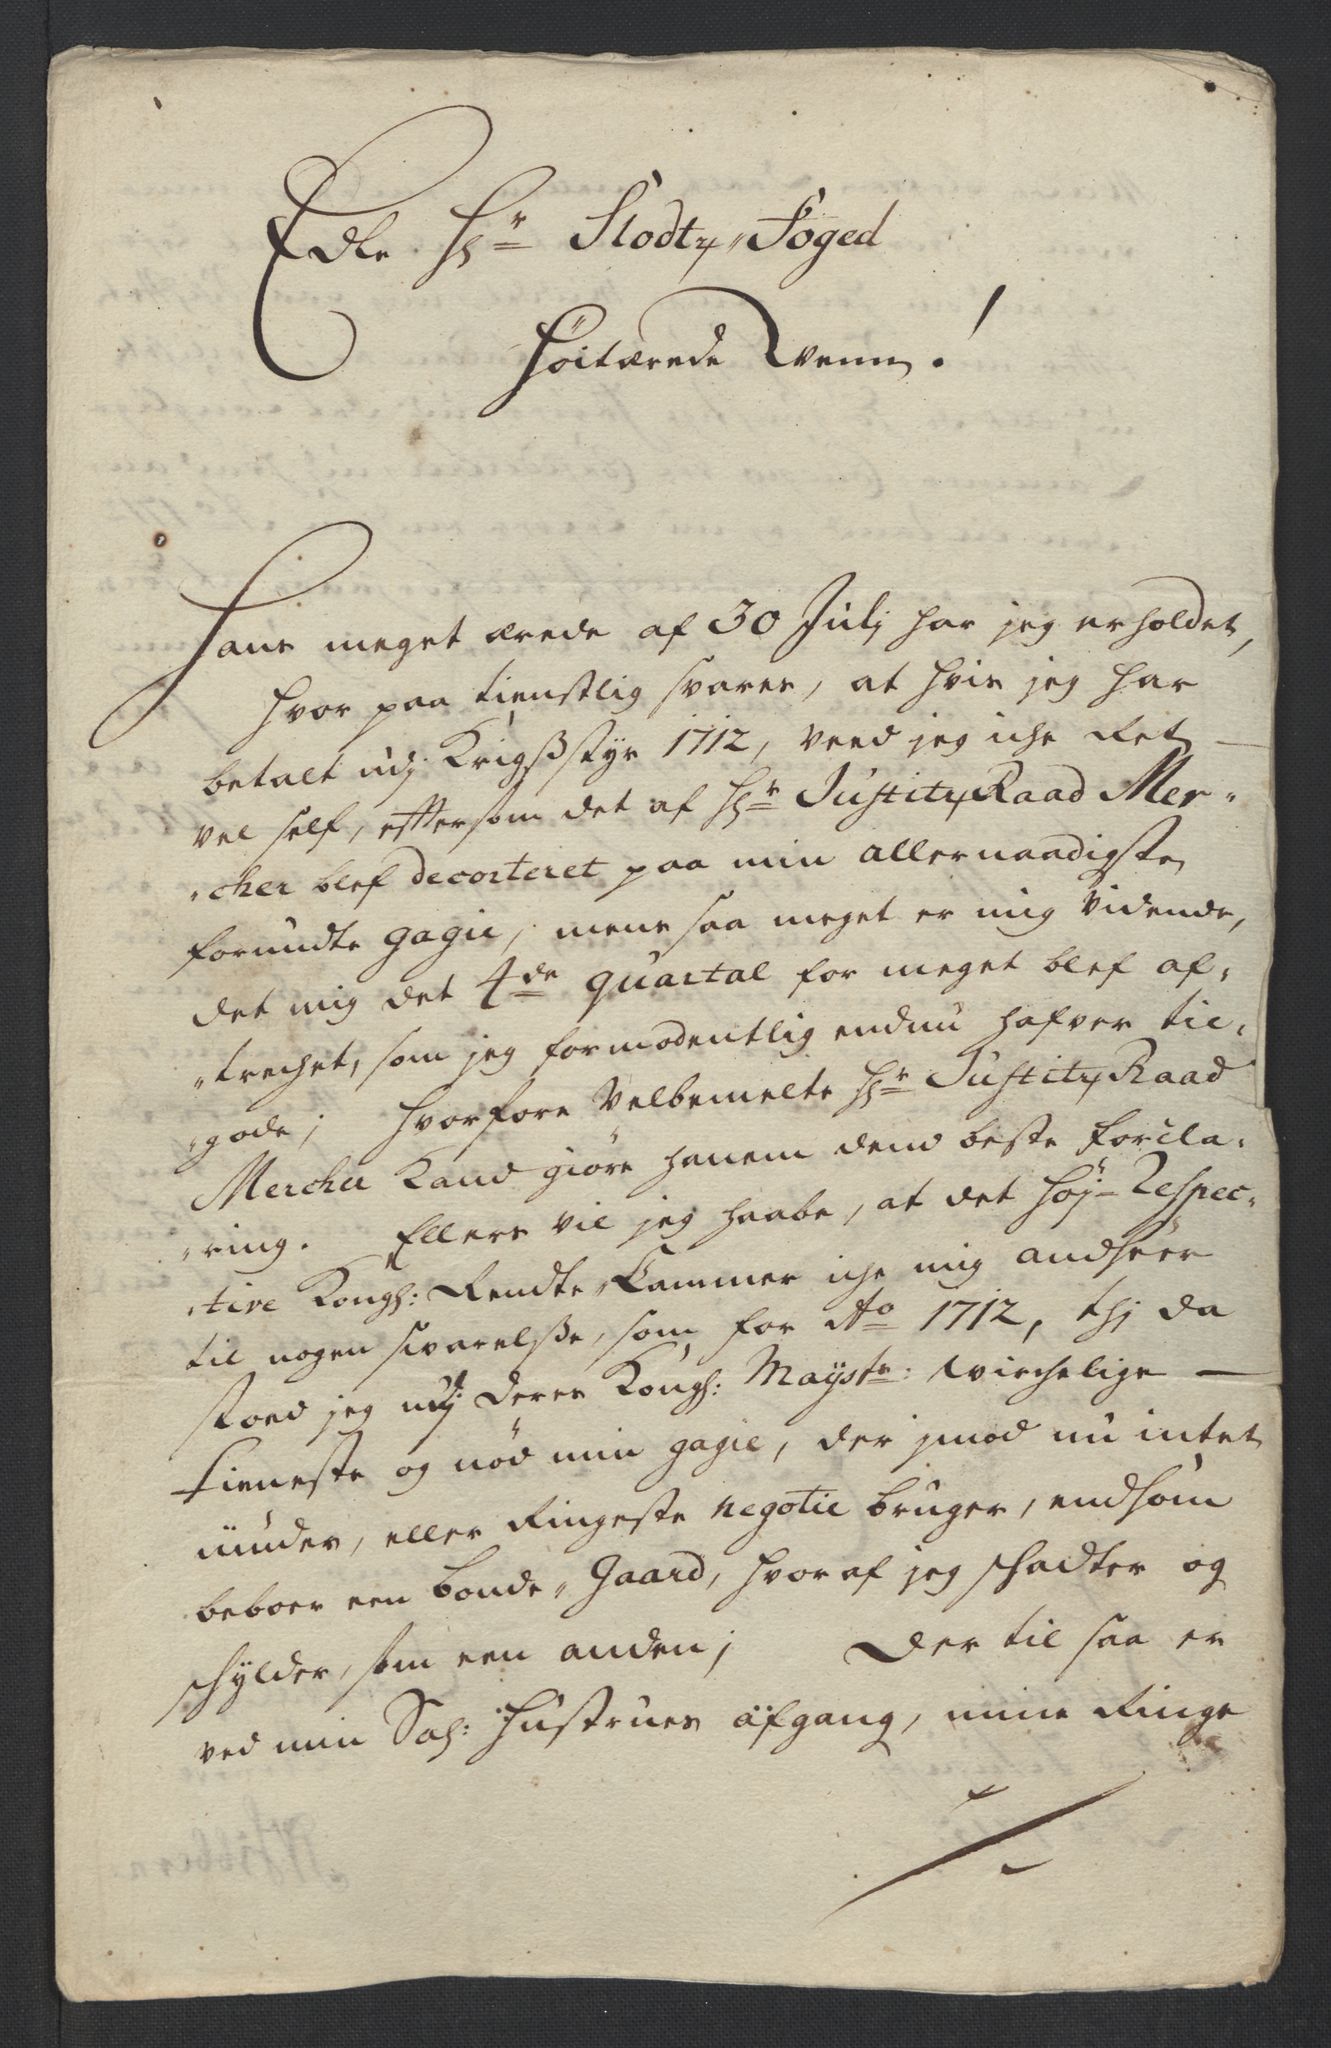 Edle Hr Slodtz,, Foged
Höitærede Wenn!
Hans meget ærede af 30 Julj har jeg erholdet,
hvor paa tienstlig svares, at hvis jeg har
betalt udj Krigsstyr 1712, veed jeg iche Ret
vel self, effter som det af Hr Justitz Raad Mer-
-cher blef decorteret paa min allernaadigste
forundte gagie, mens saa meget er mig vidende,
det mig det 4de quartal for meget blef af-
-trechet, som jeg formodentlig endnu hafver til-
-gode; hvorfore Velbemelte Hr Justitz Raad
Mercher Kand giöre hanem dend beste forcla-
-ring. Ellers vil jeg haabe, at det höj-Respec-
-tive Kongl: Rendte,, Cammer iche mig andseer
til nogen svarelsse, som for Ao 1712, thj da
stoed jeg udj Deres Kongl: Maysts: wirchelige
tieneste og nöd min gagie, der jmod nu intet
niuder, eller Ringeste negotie bruger, endsom
beboer een bonde,, Gaard, hvoraf jeg schadter og
schylder, som een anden; Der til saa er
ved min Sal: Hustrues afgang, mine Ringe